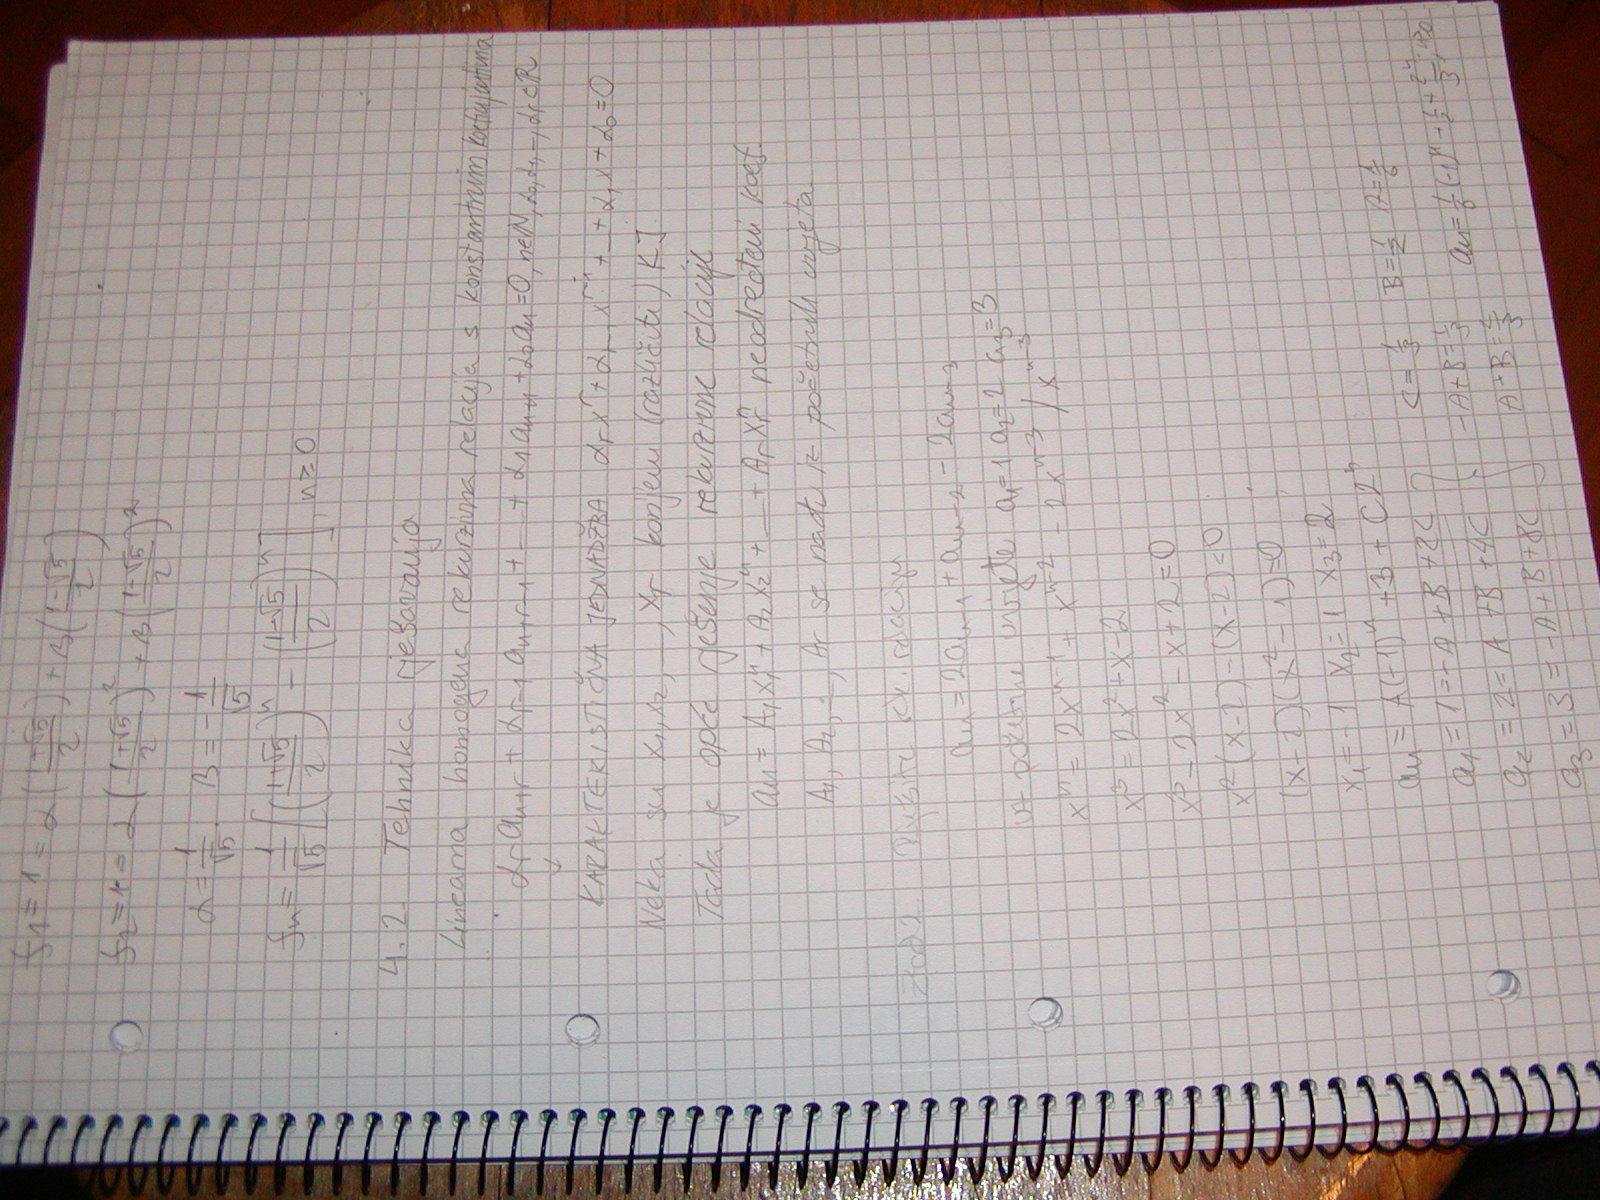 f₁ = 1 = α((1+√5)/2) + B((1-√5)/2)
f₂ = 1 = α((1+√5)/2)² + B((1-√5)/2)²
α = 1/√5 B = -1/√5
fₙ = 1/√5 [((1+√5)/2)ⁿ - ((1-√5)/2)ⁿ], n≥0
4.2. Tehnika rješavanja
Linearna homogena rekurzivna relacija s konstantnim koeficijentima
αᵣaₙ₊ᵣ + αᵣ₋₁aₙ₊ᵣ₋₁ + ... + α₁aₙ₊₁ + α₀aₙ = 0, n∈N, α₀, α₁, ..., αᵣ∈R
KARAKTERISTIČNA JEDNADŽBA αᵣxʳ + αᵣ₋₁xʳ⁻¹ + ... + α₁x + α₀ = 0
Neka su x₁, x₂, ..., xᵣ korijeni (različiti) KJ
Tada je opće rješenje rekurzivne relacije
aₙ = A₁x₁ⁿ + A₂x₂ⁿ + ... + Aᵣxᵣⁿ neodređeni koef.
A₁, A₂, ..., Aᵣ se nađu iz početnih uvjeta
Zad2. rek. relaciju
aₙ = 2aₙ₋₁ + aₙ₋₂ - 2aₙ₋₃
uz početne uvjete a₁=1 a₂=2 a₃=3
xⁿ = 2xⁿ⁻¹ + xⁿ⁻² - 2xⁿ⁻³ / xⁿ⁻³
x³ = 2x² + x - 2
x³ - 2x² - x + 2 = 0
x²(x-2) - (x-2) = 0
(x-2)(x²-1) = 0
x₁ = -1 x₂ = 1 x₃ = 2
aₙ = A(-1)ⁿ + B + C2ⁿ
a₁ = 1 = -A + B + 2C } C = 1/3 B = 1/2 A = 1/6
a₂ = 2 = A + B + 4C } -A+B = 1/3 aₙ = 1/6(-1)ⁿ + 1/2 +
a₃ = 3 = -A + B + 8C } A+B =